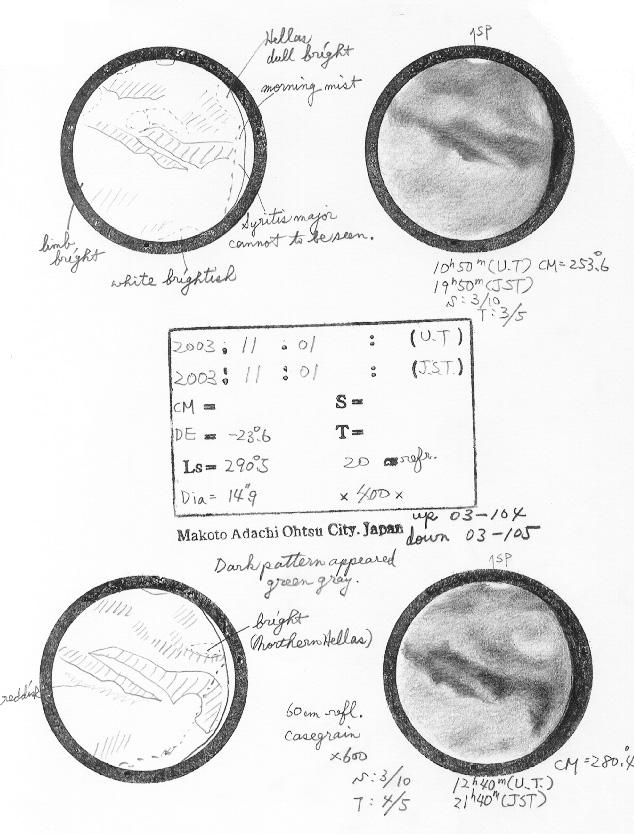 Hellas
dull bright
morning mist
Syritis major
cannot to be seen.
limb
bright
white brightish
↑SP
10ʰ50ᵐ(U.T) CM=253.°6
19ʰ50ᵐ(JST)
S:3/10
T:3/5
2003 : 11 : 01 : (U.T)
2003 : 11 : 01 : (J.S.T.)
CM = S=
DE = -23.°6 T=
Ls= 290.°5 20 cm refr.
Dia= 14."9 × 400 ×
Makoto Adachi Ohtsu City. Japan
up 03-104
down 03-105
Dark pattern appeared
green gray.
↑SP
bright
(Northern Hellas)
reddish
60cm refl.
Casegrain
×600
S:3/10
T:4/5
CM=280.°4
12ʰ40ᵐ(U.T.)
21ʰ40ᵐ(JST)